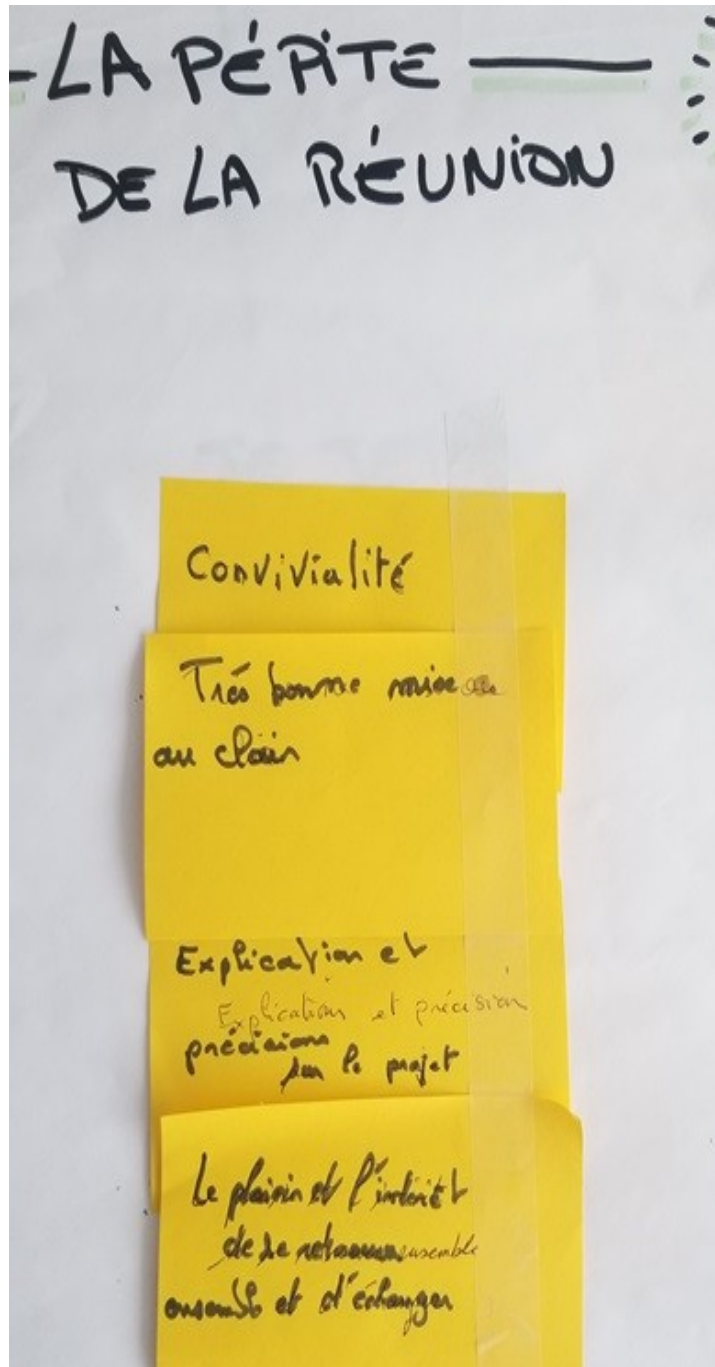 LA PÉPITE
DE LA RÉUNION
Convivialité
Très bonne mise
au clair
Explication et
Explication et précision
précisions
sur le projet
Le plaisir et l'intérêt
de se retrouver ensemble
ensemble et d'échanger